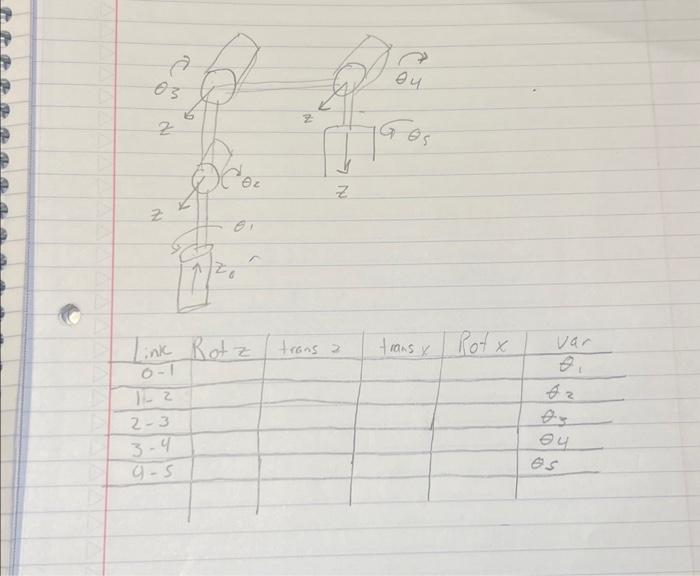 θ3
θ4
z
z
θ5
θ2
z
z
θ1
z0
Link Rot z trans z trans x Rot x var
0-1 θ1
1-2 θ2
2-3 θ3
3-4 θ4
4-5 θ5